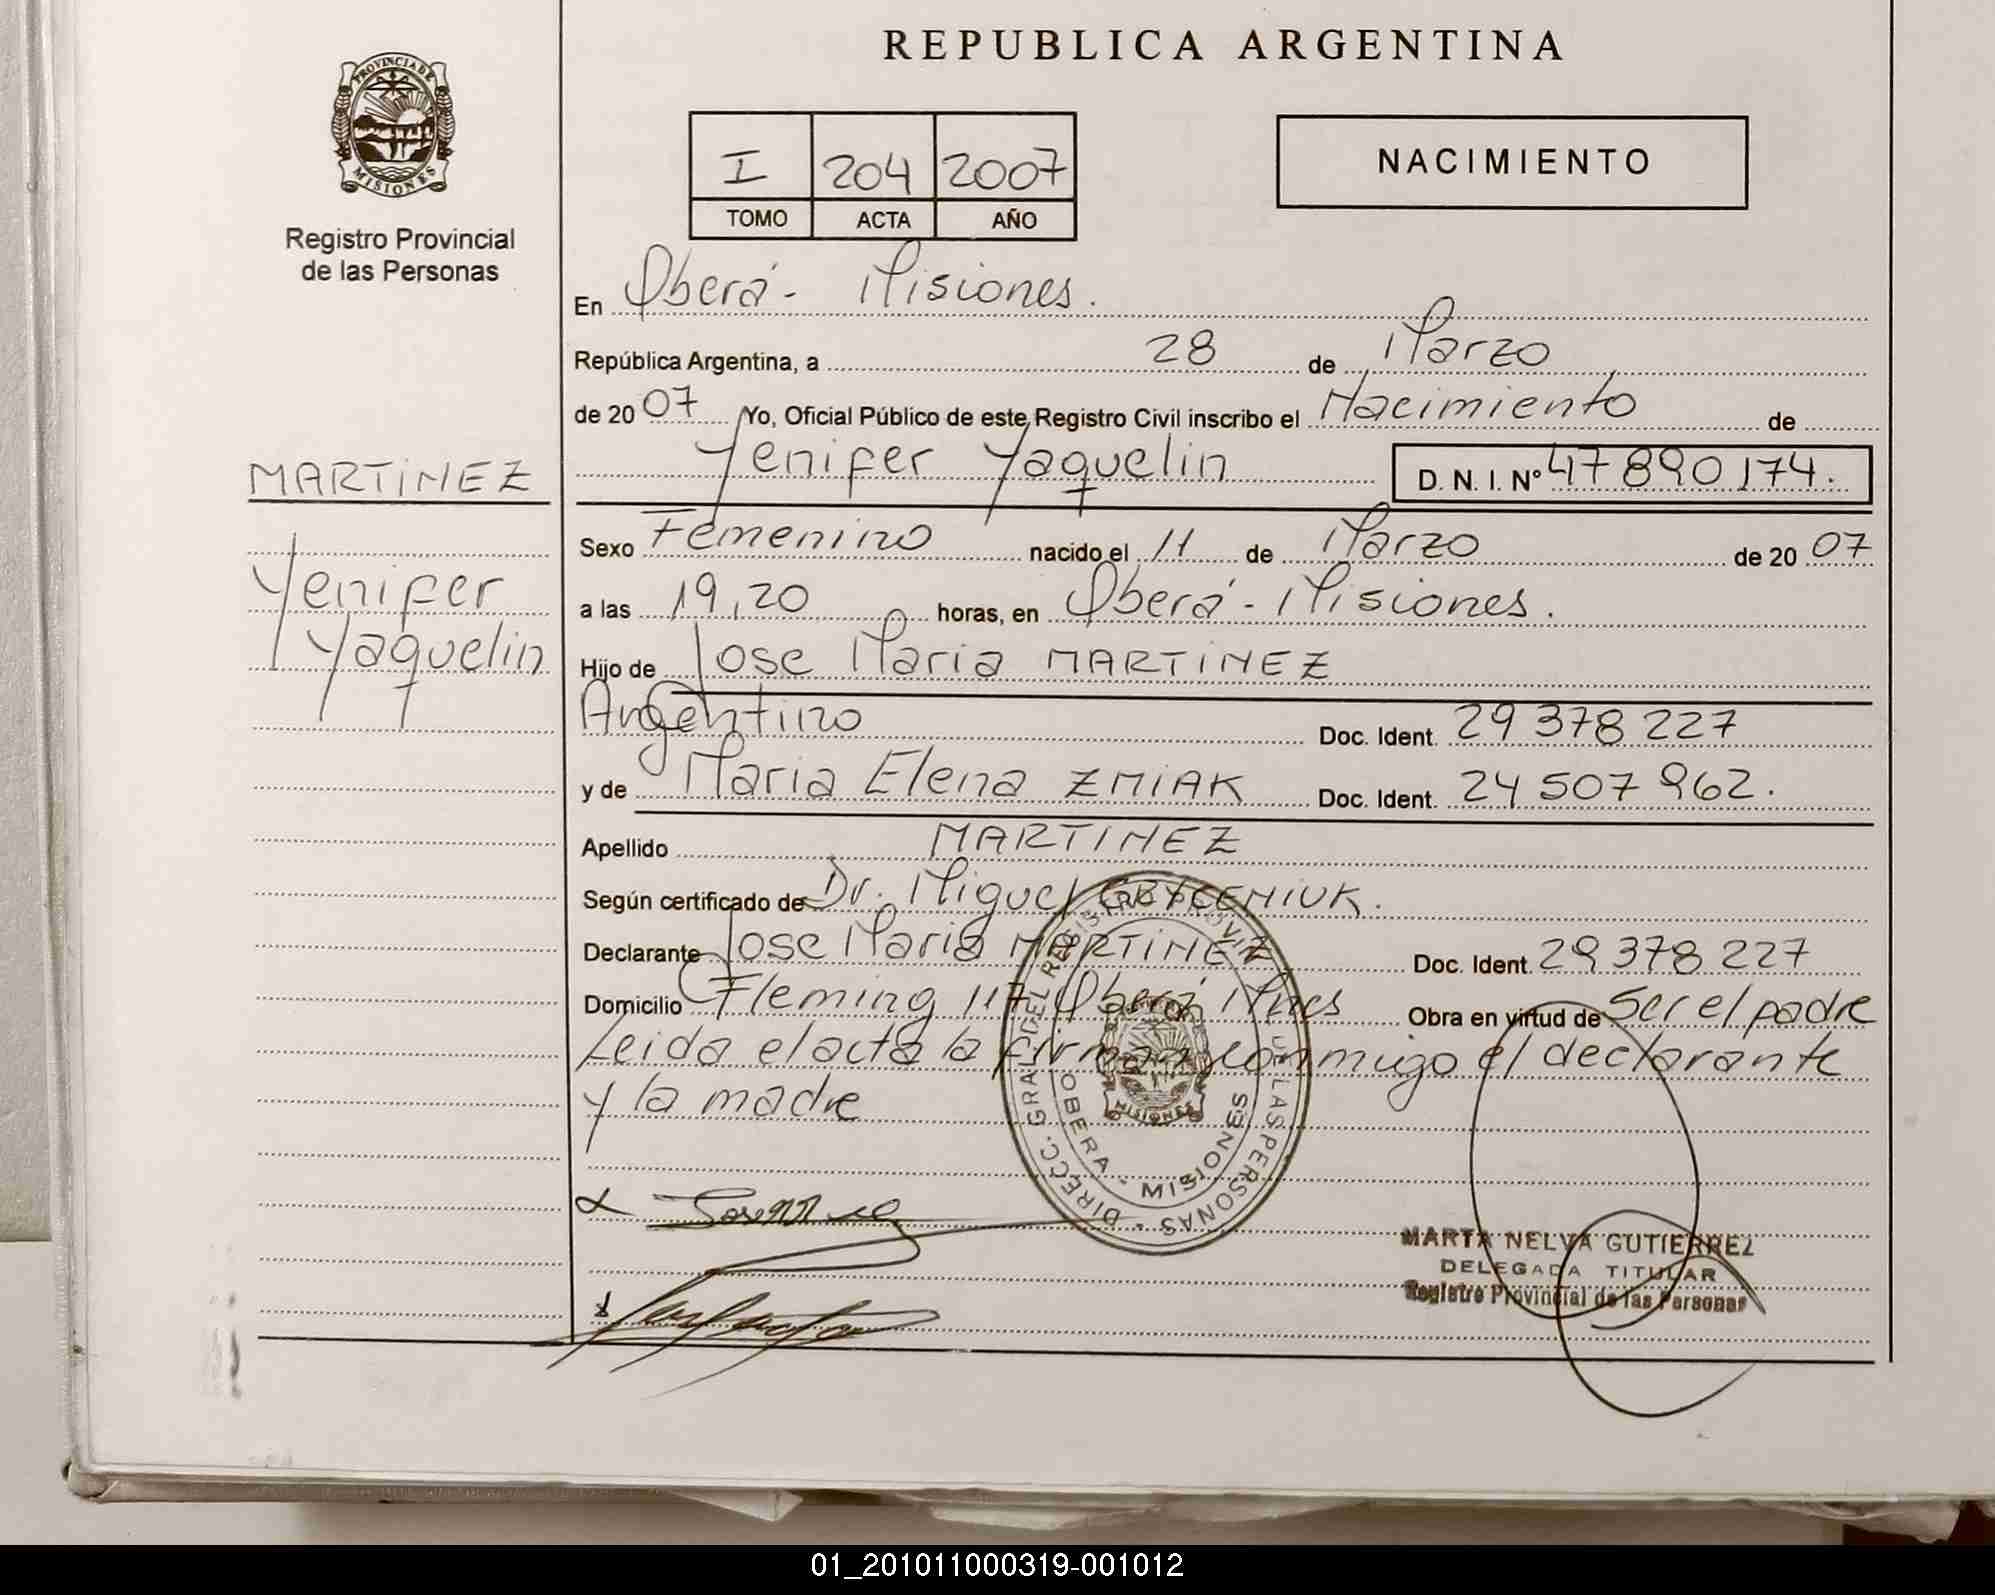 REPUBLICA ARGENTINA
PROVINCIA DE
MISIONES
Registro Provincial
de las Personas
I 204 2007
TOMO ACTA AÑO
NACIMIENTO
En Oberá - Misiones.
República Argentina, a 28 de Marzo
de 20 07 Yo, Oficial Público de este Registro Civil inscribo el Nacimiento de
Yenifer Yaquelin D. N. I. Nº 47890174.
MARTINEZ
Yenifer
Yaquelin
Sexo Femenino nacido el 11 de Marzo de 20 07
a las 19,20 horas, en Oberá - Misiones.
Hijo de Jose Maria MARTINEZ
Argentino Doc. Ident. 29 378 227
y de Maria Elena ZMIAK Doc. Ident. 24 507 962.
Apellido MARTINEZ
Según certificado de Dr. Miguel
Declarante Jose Maria MARTINEZ Doc. Ident. 29 378 227
Domicilio Fleming 117 Oberá Mnes Obra en virtud de Ser el padre
Leida el acta la firman conmigo el declarante
y la madre
DIRECC. GRAL DEL REGISTRO PROVINCIAL DE LAS PERSONAS
OBERA - MISIONES
MISIONES
MARTA NELVA GUTIERREZ
DELEGADA TITULAR
Registro Provincial de las Personas
01_201011000319-001012